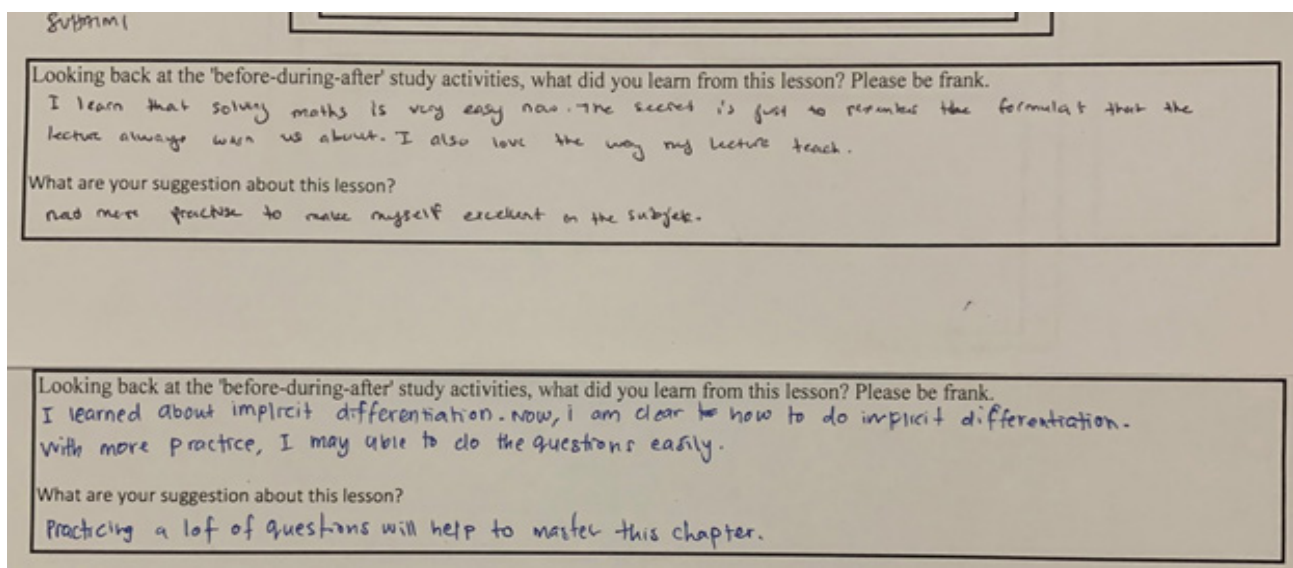 Looking back at the 'before-during-after' study activities, what did you learn from this lesson? Please be frank.
I learn that solving maths is very easy now. The secret is just to remember the formula that the
lecture always warn us about. I also love the way my lecture teach.
What are your suggestion about this lesson?
more practise to make myself excellent on the subjek.
Looking back at the 'before-during-after' study activities, what did you learn from this lesson? Please be frank.
I learned about implicit differentiation. Now, i am clear how to do implicit differentiation.
with more practice, I may able to do the questions easily.
What are your suggestion about this lesson?
Practicing a lof of questions will help to master this chapter.